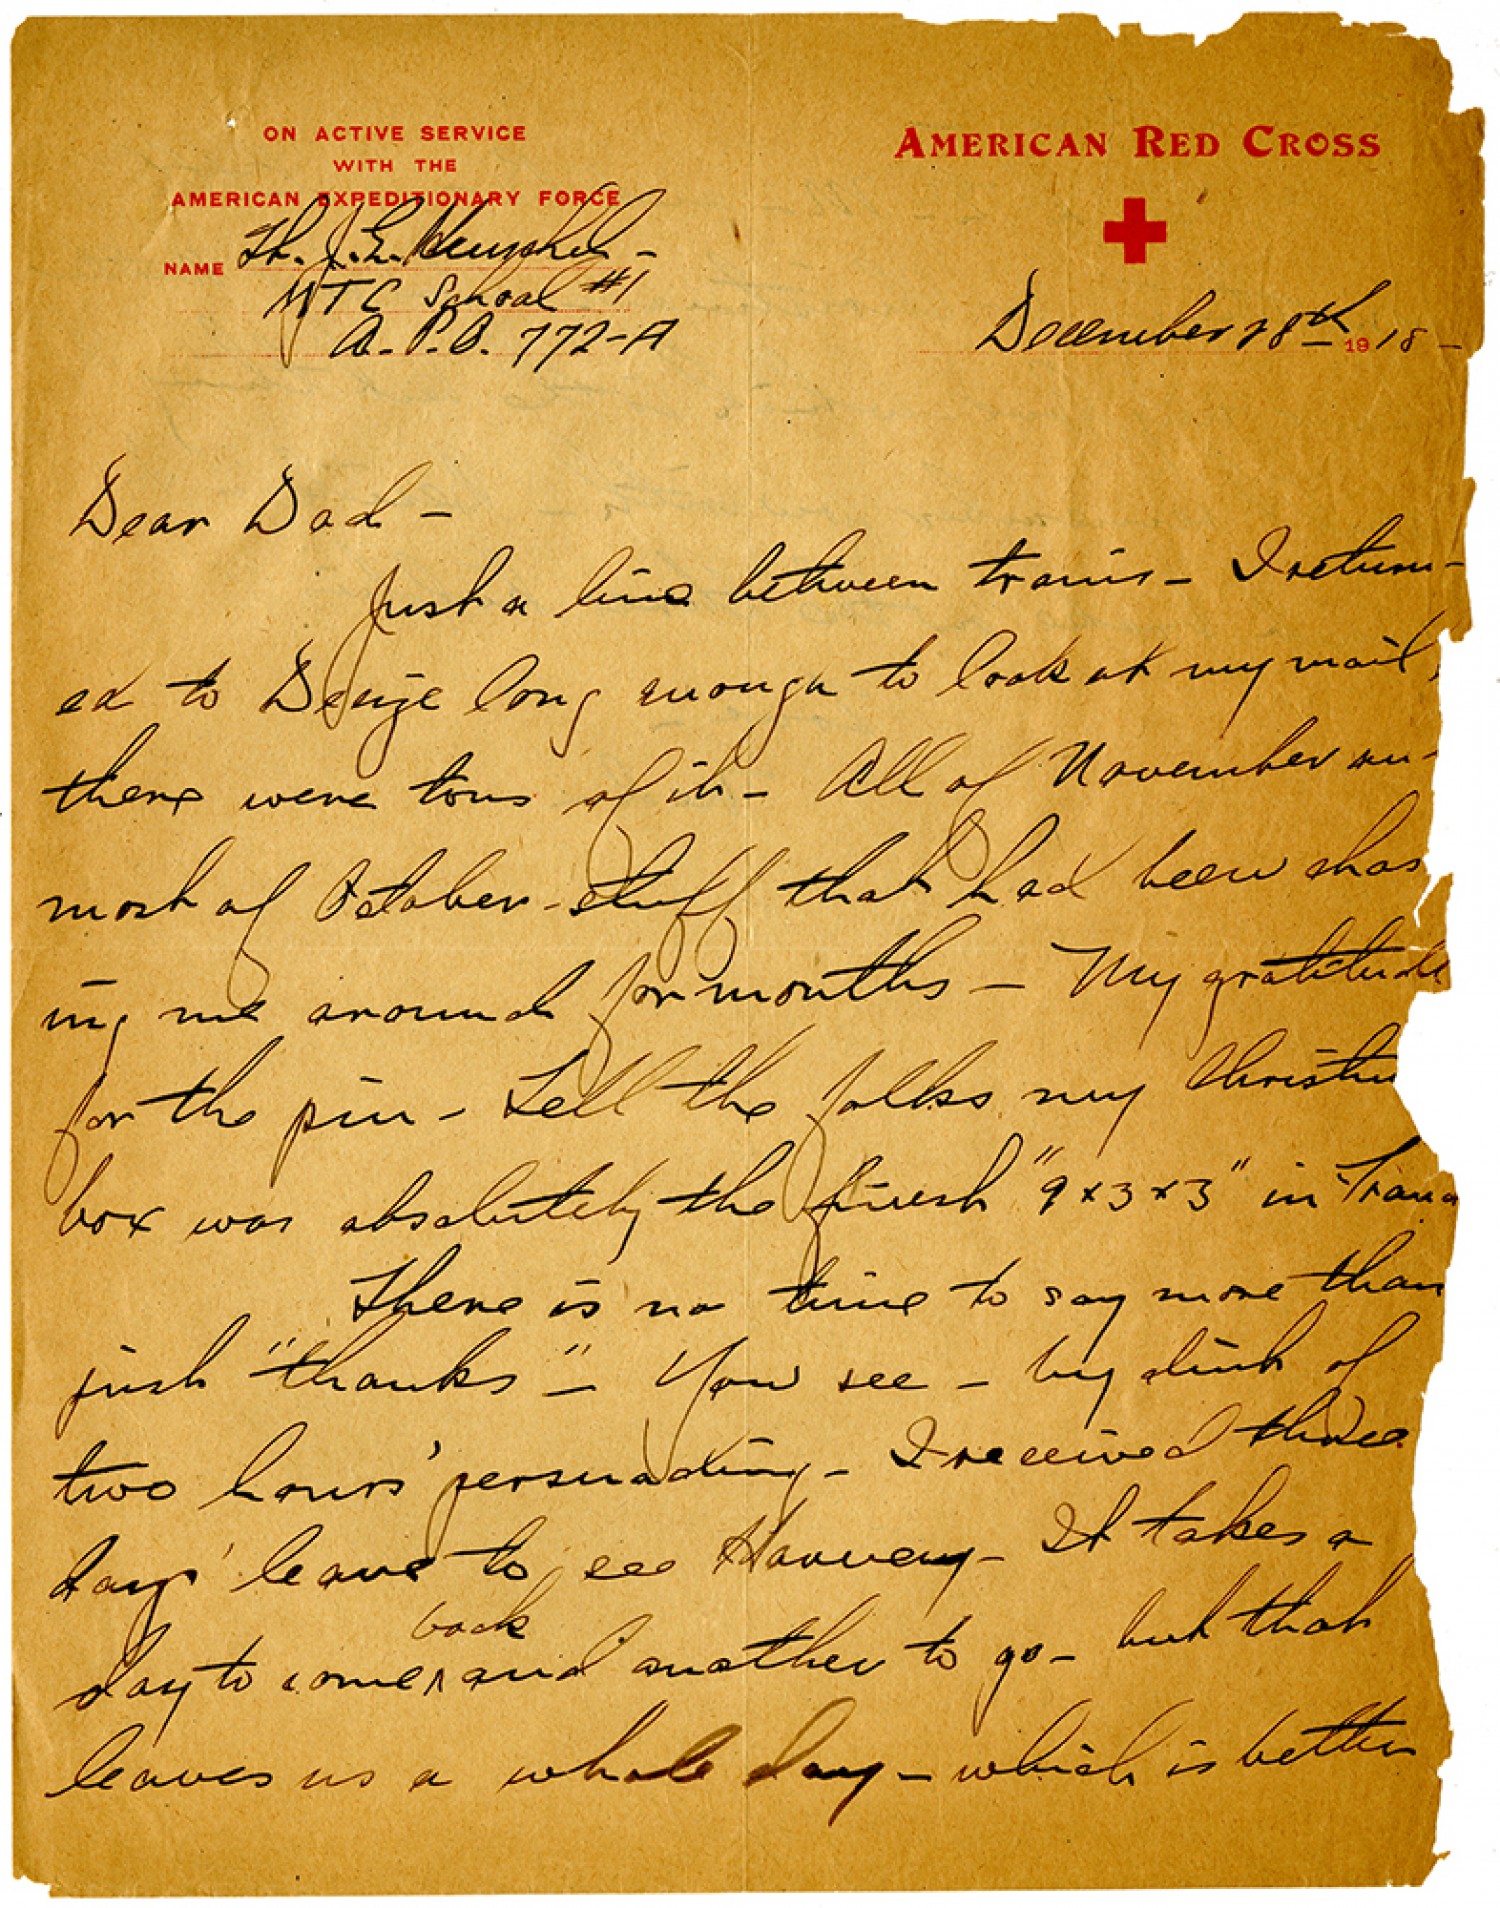 ON ACTIVE SERVICE
WITH THE
AMERICAN EXPEDITIONARY FORCE
NAME Lt. J. G.
MTC School #1
A.P.O. 772-A
AMERICAN RED CROSS
December 28th 1918 -
Dear Dad -
Just a line between trains - I return-
ed to Decize long enough to look at my mail,
there were tons of it - All of November an-
most of October - stuff that had been chas
ing me around for months - My gratitude
for the pin - Tell the folks my Christm
box was absolutely the finest "9x3x3" in Franc
There is no time to say more than
just "thanks" - You see - by dint of
two hours' persuading - I received three
days' leave to see Harvey - It takes a
day to come back and another to go - but that
leaves us a whole day - which is better